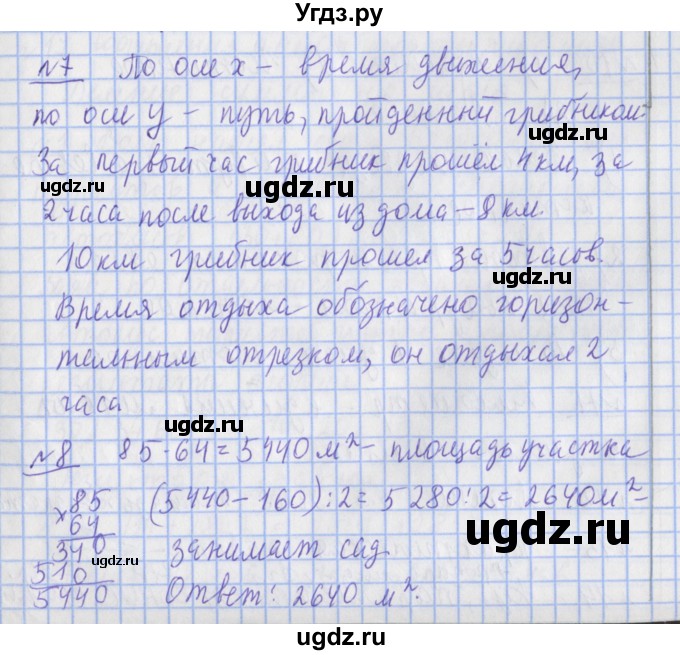 Угдз.ру
№7 По оси x – время движения,
по оси y – путь, пройденный грибником.
За первый час грибник прошёл 4 км, за
2 часа после выхода из дома – 8 км.
10 км грибник прошел за 5 часов.
Время отдыха обозначено горизон-
тальным отрезком, он отдыхал 2
часа
№8 85·64=5440 м² – площадь участка
×85 (5440–160):2=5280:2=2640м² –
64
340 занимает сад
510
5440 Ответ: 2640 м².
ugdz.ru
ugdz.ru
ugdz.ru
ugdz.ru
ugdz.ru
ugdz.ru
ugdz.ru
ugdz.ru
ugdz.ru
ugdz.ru